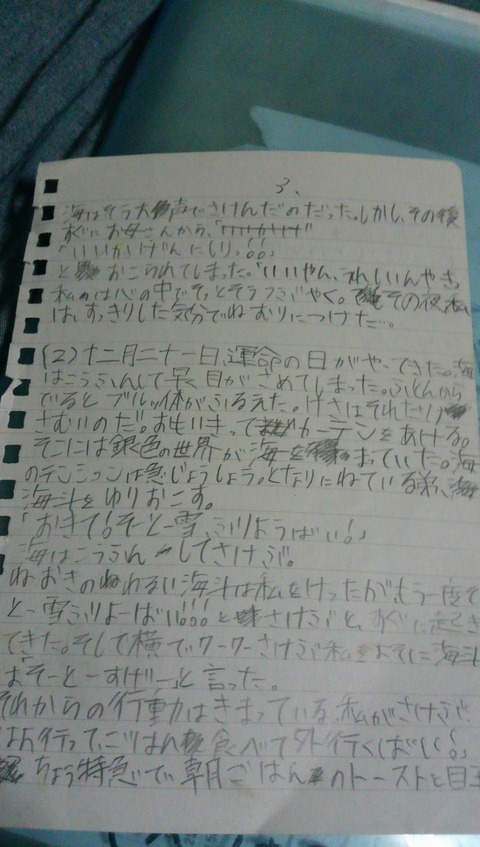 3、
海はそう大声でさけんだのだった。しかし、その後
すぐにお母さんから、「
「いいかげんにしり!!」
とおこられてしまった。「いいやん、うれしいんやき。」
私のは心の中でそっとそうつぶやく。その夜、私
は、すっきりした気分でねむりにつけた…。
(2)十二月二十一日、運命の日がやってきた。海
はこうふんして早く目がさめてしまった。ふとんから
でいるとブルッ体がふるえた。けさはそれだけ
さむいのだ。お生いきってカーテンをあける。
そこには銀色の世界が海をまっていた。海
のテンションは急じょうしょう。となりにねている弟、海
海斗をゆりおこす。
「おきて!そとー雪ふりようばい!」
海はこうふんしてさけぶ。
ねおきのわるい海斗は私をけったがもう一度そ
とー雪ふりよーばい!!!とさけぶと、すぐに起き
てきた。そして横でワーワーさけぶ私をよそに海斗
は「そーとーすげー」と言った。
それからの行動はきまっている。私がさけぶ。
行って、ごはん食べて外行くばい!」
ちょう特急で朝ごはんのトーストと目玉